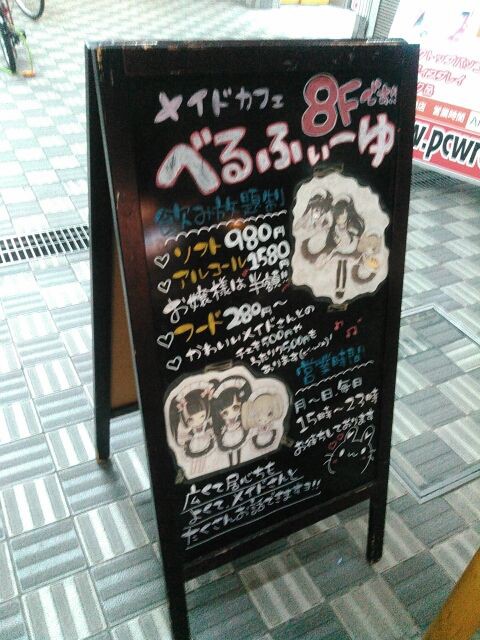 メイドカフェ
8Fです!!
べるふぃーゆ
飲み放題制
♡ソフト 980円
♡アルコール 1580円
お嬢様は半額!!
♡フード 280円〜
♡かわいいメイドさんとの
チェキ500円や
あります
営業時間
月〜日 毎日
15時〜23時
お待ちしております
広くて居心地も
よくて、メイドさんと
たくさんお話できますヨ!!
営業時間
www.pcwr